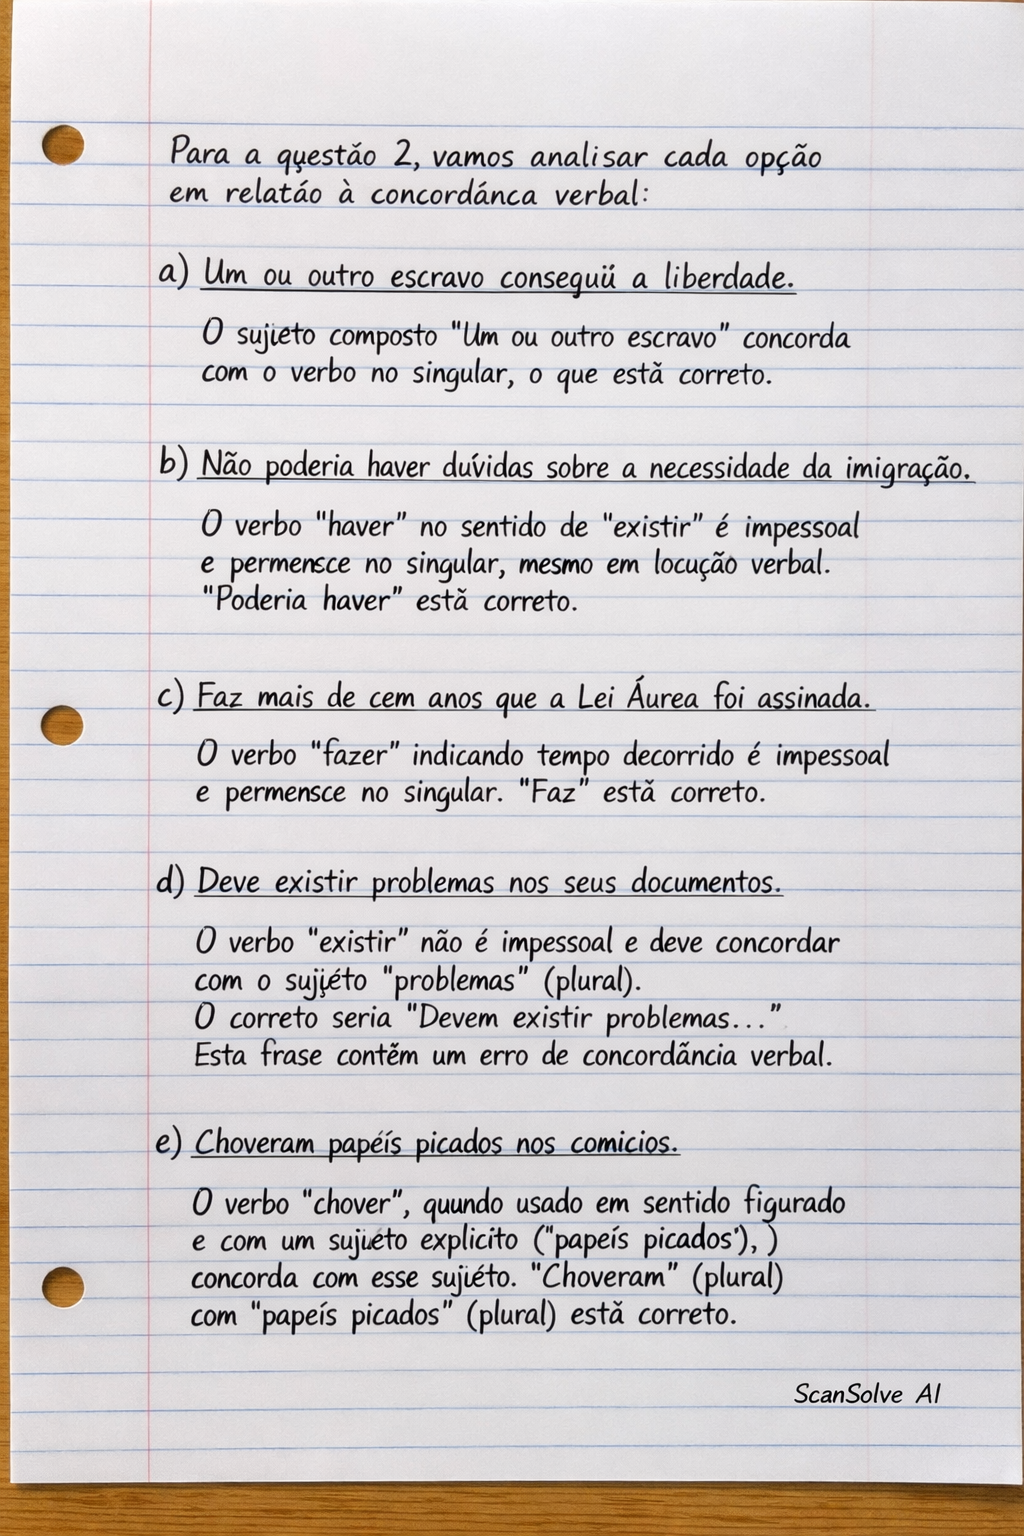 Para a questáo 2, vamos analisar cada opção
em relatáo à concordánca verbal:
a) Um ou outro escravo conseguiü a liberdade.
O sujieto composto "Um ou outro escravo" concorda
com o verbo no singular, o que estă correto.
b) Não poderia haver duívidas sobre a necessidade da imigração.
O verbo "haver" no sentido de "existir" é impessoal
e permensce no singular, mesmo em locução verbal.
"Poderia haver" estă correto.
c) Faz mais de cem anos que a Lei Áurea foi assinada.
O verbo "fazer" indicando tempo decorrido é impessoal
e permensce no singular. "Faz" estă correto.
d) Deve existir problemas nos seus documentos.
O verbo "existir" não é impessoal e deve concordar
com o sujjéto "problemas" (plural).
O correto seria "Devem existir problemas..."
Esta frase contẽm um erro de concordãncia verbal.
e) Choveram papéís picados nos comicios.
O verbo "chover", quundo usado em sentido figurado
e com um sujuéto explicito ("papeís picados"), )
concorda com esse sujiéto. "Choveram" (plural)
com "papeís picados" (plural) estă correto.
ScanSolve AI